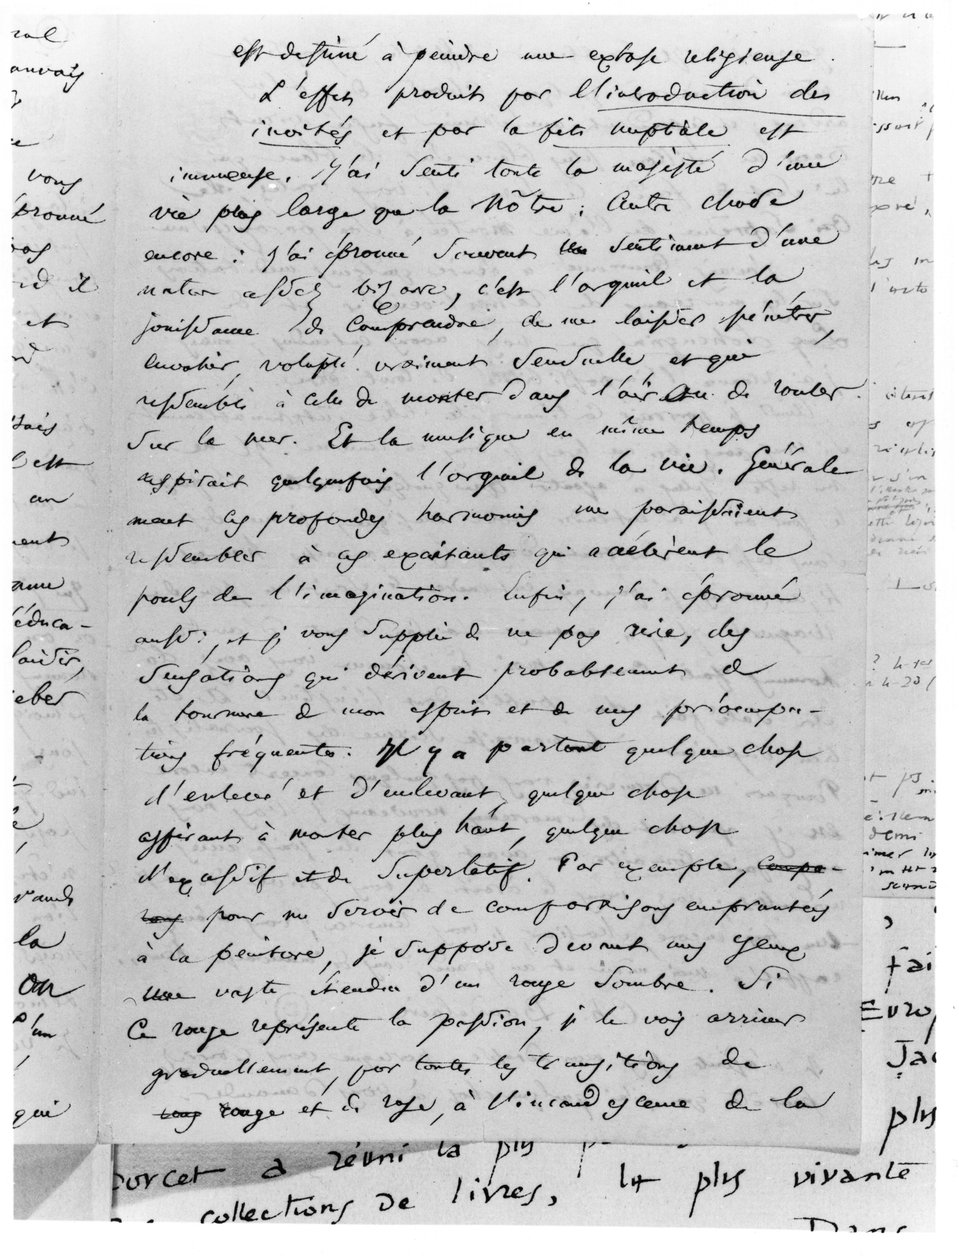 est destiné à peindre une extase religieuse.
L'effet produit par l'introduction des
invités et par la fête nuptiale est
immense. J'ai senti toute la majesté d'une
vie plus large que la nôtre. Autre chose
encore : j'ai éprouvé souvent un sentiment d'une
nature assez bizarre, c'est l'orgueil et la
jouissance de comprendre, de me laisser pénétrer,
envahir, volupté vraiment sensuelle et qui
ressemble à celle de monter dans l'air ou de rouler
sur la mer. Et la musique en même temps
respirait quelquefois l'orgueil de la vie. Générale
ment ces profondes harmonies me paraissaient
ressembler à ces excitants qui accélèrent le
pouls de l'imagination. Enfin, j'ai éprouvé
aussi, et je vous supplie de ne pas rire, des
sensations qui dérivent probablement de
la tournure de mon esprit et de mes préoccupa-
tions fréquentes. Il y a partout quelque chose
d'enlevé et d'enlevant, quelque chose
aspirant à monter plus haut, quelque chose
d'excessif et de superlatif. Par exemple, compa-
rons pour me servir de comparaisons empruntées
à la peinture, je suppose devant mes yeux
une vaste étendue d'un rouge sombre. Si
ce rouge représente la passion, je le vois arriver
graduellement, par toutes les transitions de
rouge et de rose, à l'incandescence de la
vous
éprouvé
pas
il
et
l'est
un
éduca-
la
on
qui
fai
Europ
Jac
plus
orcet a réuni la plus
collections de livres, la plus vivante
Dans